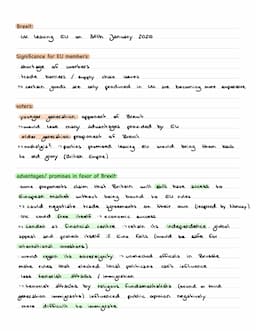 Brexit:
UK leaving EU on 31st January 2020
Significance for EU members:
shortage of workers
trade barriers / supply chain issues
→ certain goods are only produced in UK are becoming more expensive
voters:
younger generation opponent of Brexit
→ would lose many advantages provided by EU
older generation proponent of Brexit
→ nostalgia: → parties promised leaving EU would bring them back
to old glory (British Empire)
advantages/ promises in favor of Brexit:
some proponents claim that Britain will still have access to
European market without being bound to EU rules
→ could negotiate trade agreements on their own
UK could free itself → economic success
→ London as financial centre → retain its independence, global
appeal and protect itself if Euro fails (would be safe for
international investors)
would regain its sovereignty → unelected officials in Brussels
make rules that elected local politicians can't influence
less terrorist attacks / immigration
→ terrorist attacks by religious fundamentalists (second or third
generation immigrants) influenced public opinion negatively
more difficult to immigrate